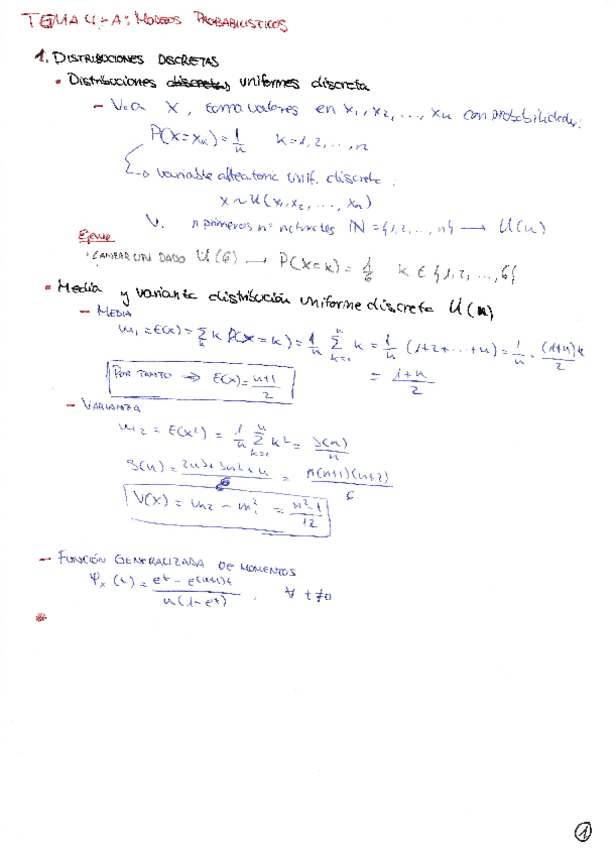 TEMA 4-A: MODELOS PROBABILISTICOS
1. DISTRIBUCIONES DISCRETAS
• Distribuciones discretas uniformes discreta
- V.a X, toma valores en x₁, x₂, ..., xₙ con probabilidades:
P(X=xₖ) = 1/n k=1,2,...,n
↳ variable aleatoria unif. discreta:
X ~ U(x₁, x₂, ..., xₙ)
V. n primeros nº naturales IN = {1,2,...,n} → U(n)
Ejemplo
· LANZAR UN DADO U(6) → P(X=k) = 1/6 k ∈ {1,2,...,6}
• Media y varianza distribución uniforme discreta U(n)
- MEDIA
m₁ = E(X) = Σₖ k P(X=k) = 1/n Σₖ₌₁ⁿ k = 1/n (1+2+...+n) = 1/n · (1+n)n/2
= 1+n/2
POR TANTO → E(X) = n+1/2
- VARIANZA
m₂ = E(X²) = 1/n Σₖ₌₁ⁿ k² = S(n)/n
S(n) = 2n³+3n²+n/6 = n(n+1)(n+2)/6
V(X) = m₂ - m₁² = n²-1/12
- FUNCIÓN GENERALIZADA DE MOMENTOS
φₓ(t) = eᵗ - e⁽ⁿ⁺¹⁾ᵗ / n(1-eᵗ), ∀ t≠0
1